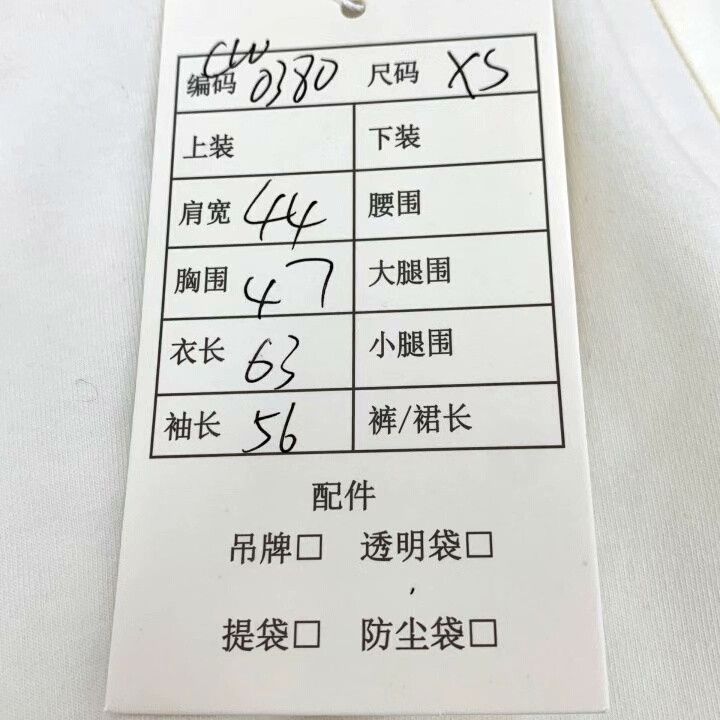 编码 CW0380 尺码 XS
上装 下装
肩宽 44 腰围
胸围 47 大腿围
衣长 63 小腿围
袖长 56 裤/裙长
配件
吊牌□ 透明袋□
提袋□ 防尘袋□